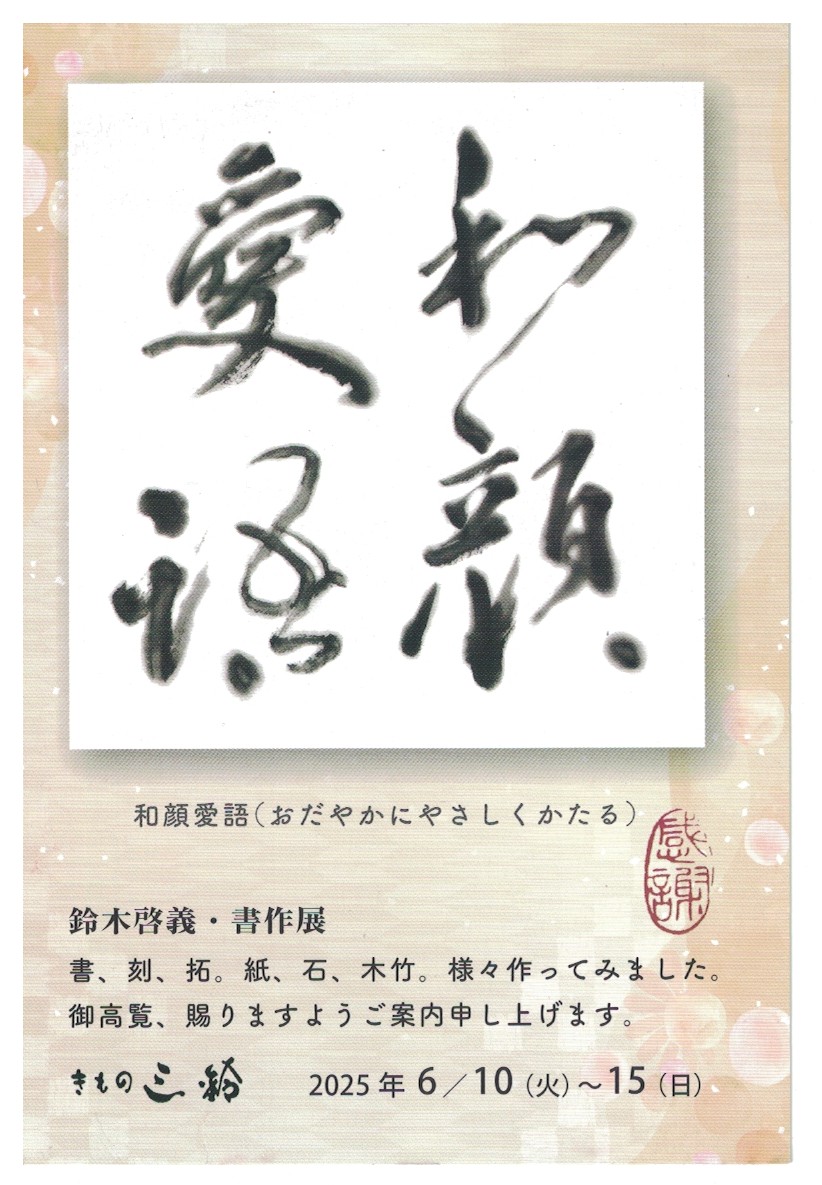 和顔
愛語
和顔愛語(おだやかにやさしくかたる)
感謝
鈴木啓義・書作展
書、刻、拓。紙、石、木竹。様々作ってみました。
御高覧、賜りますようご案内申し上げます。
きもの 三鈴
2025年 6/10(火)~15(日)